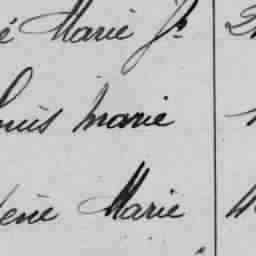 é Marie Jh
ouis marie
lène Marie